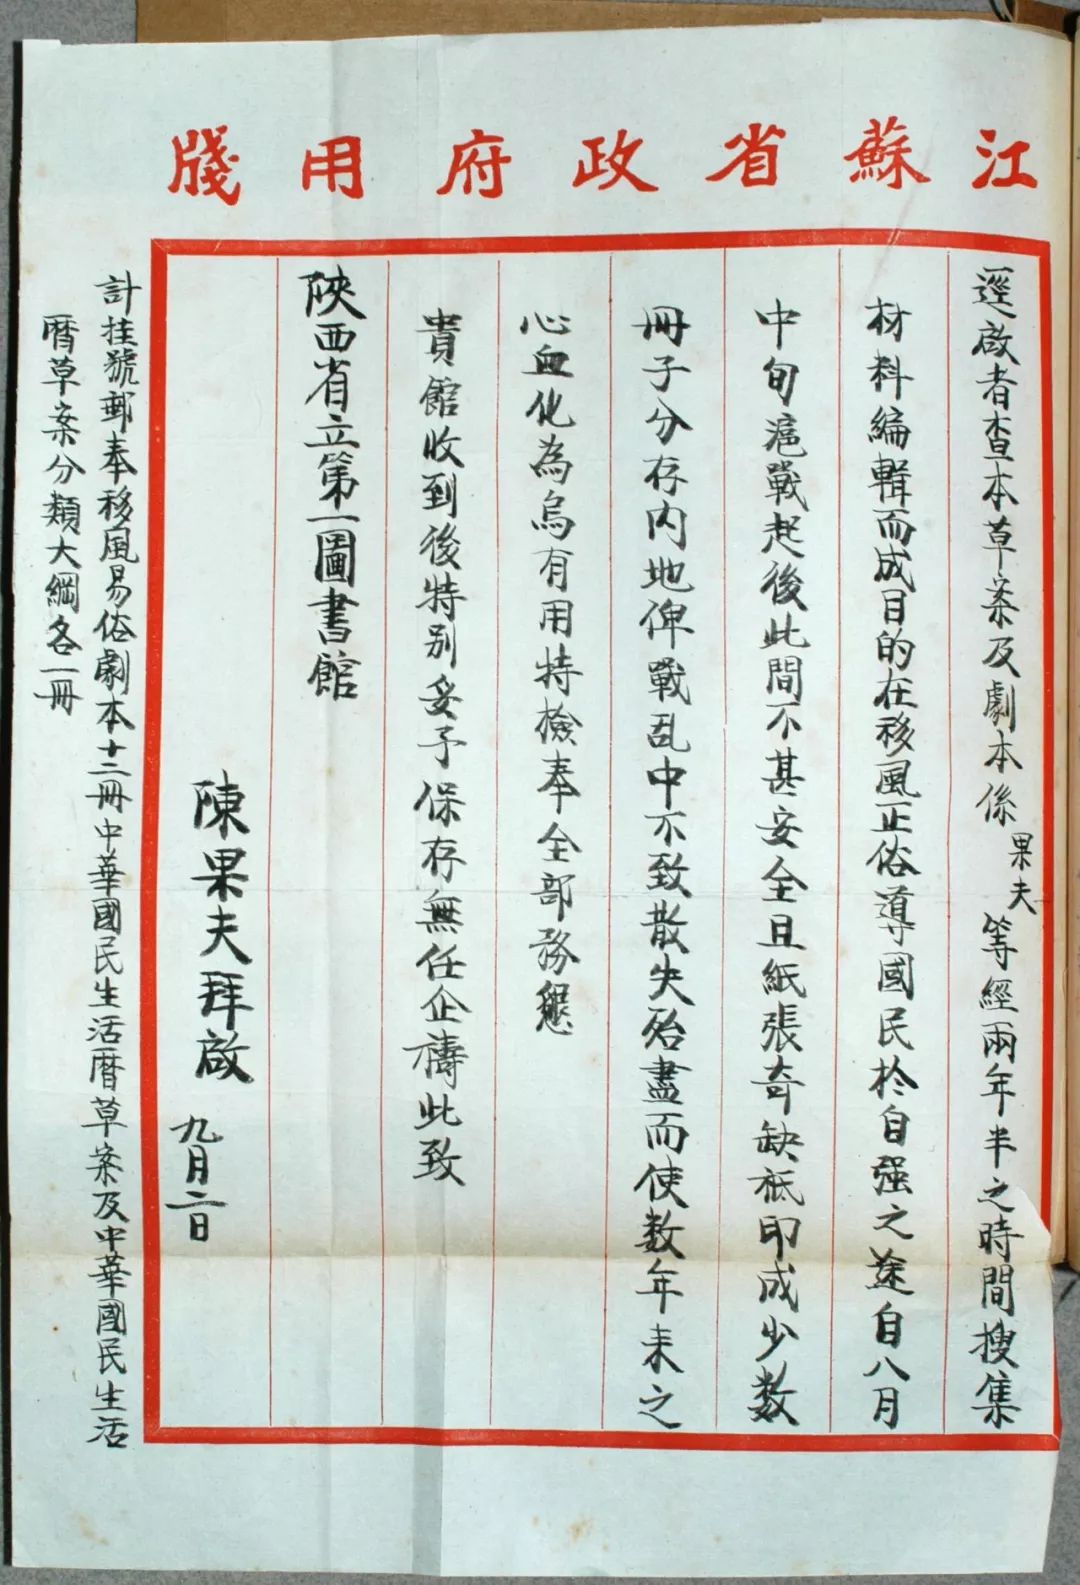 江蘇省政府用牋
逕啟者查本草案及劇本係果夫等經兩年半之時間搜集
材料編輯而成目的在移風正俗導國民於自强之途自八月
中旬滬戰起後此間不甚安全且紙張奇缺祇印成少数
冊子分存内地俾戰乱中不致散失殆盡而使数年来之
心血化為烏有用特檢奉全部務懇
貴館收到後特别妥予保存無任企禱此致
陝西省立第一圖書館
陳果夫拜啟 九月二日
計挂號郵奉移風易俗劇本十二冊中華國民生活曆草案及中華國民生活
曆草案分類大綱各一冊